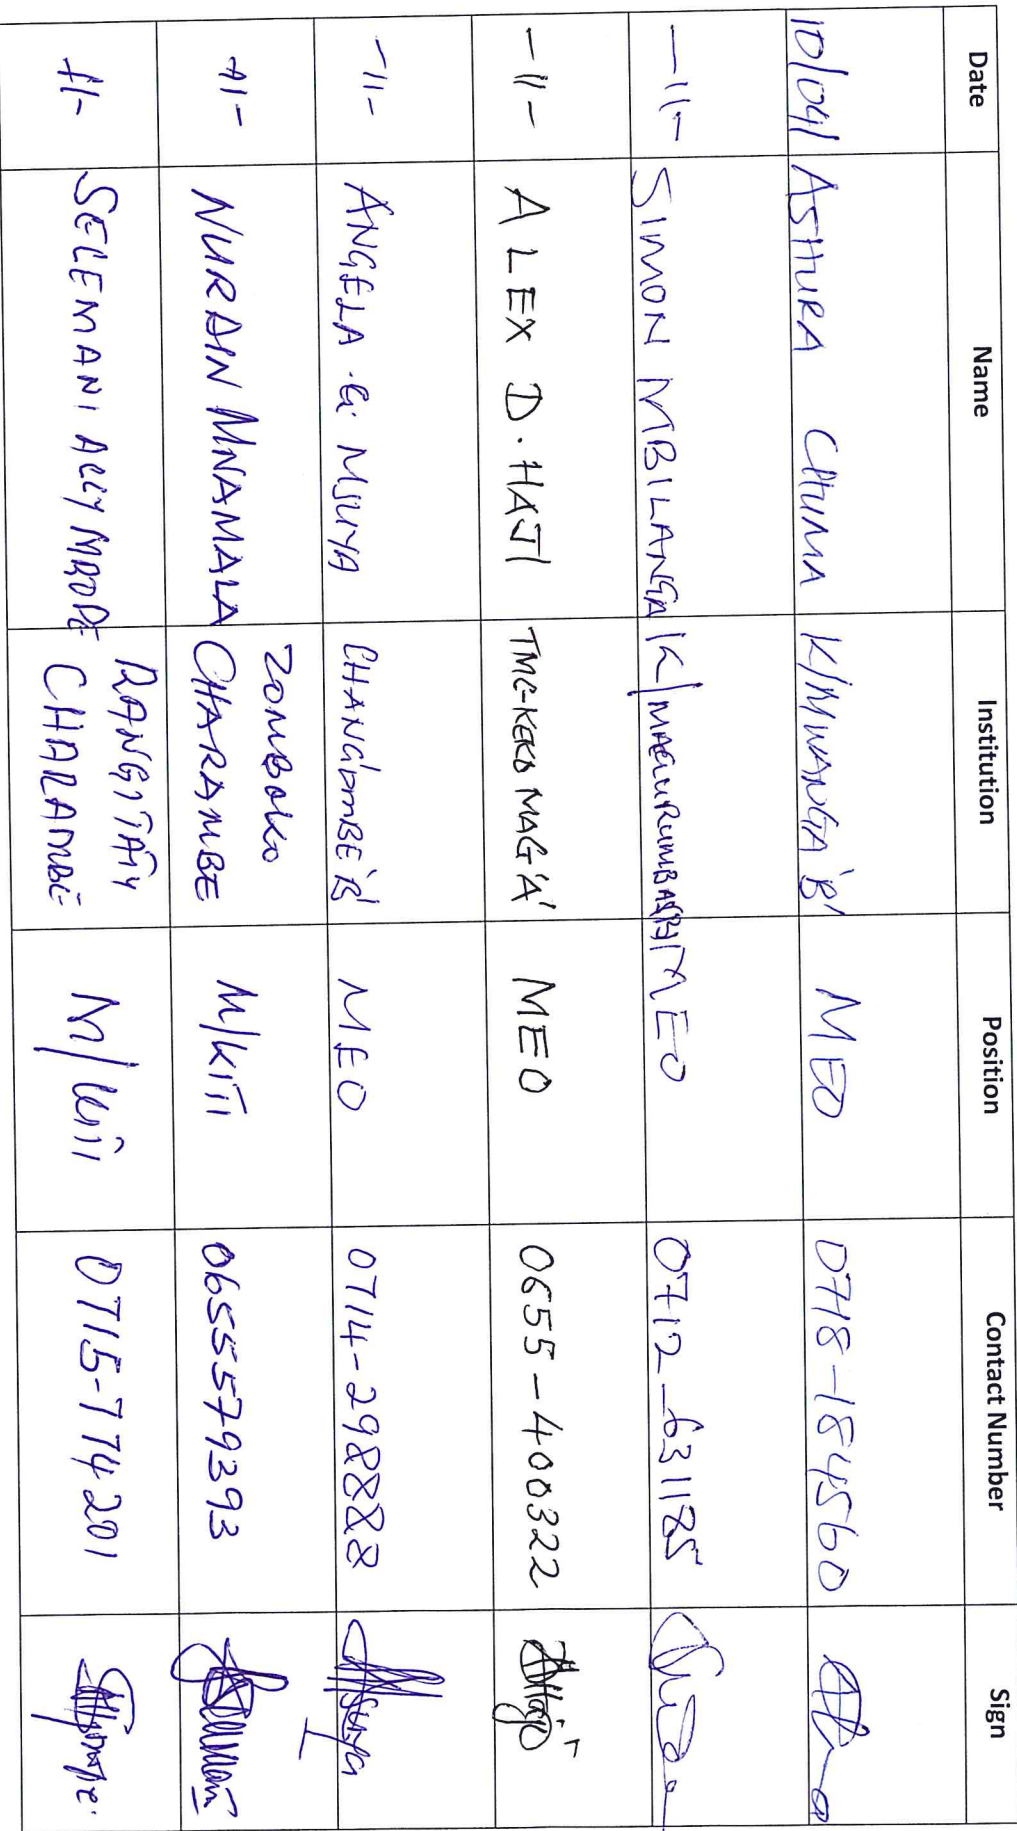 Date Name Institution Position Contact Number Sign
10/04 ASHURA CHUMA K/MWANGA 'B' MEO 0718-184560
-11- SIMON MBILANGA MEO 0712-631185
-11- ALEX D. HAJI TMC-KEKO MAG 'A' MEO 0655-400322
-11- ANGELA G. MSUYA CHANG'OMBE 'B' MEO 0714-298888
-11- NURDIN MNAMALA ZOMBOKO CHARAMBE M/KITI 0655579393
-11- SELEMANI ALLY MBOPE RANGITATU CHARAMBE M/KITI 0715-774201